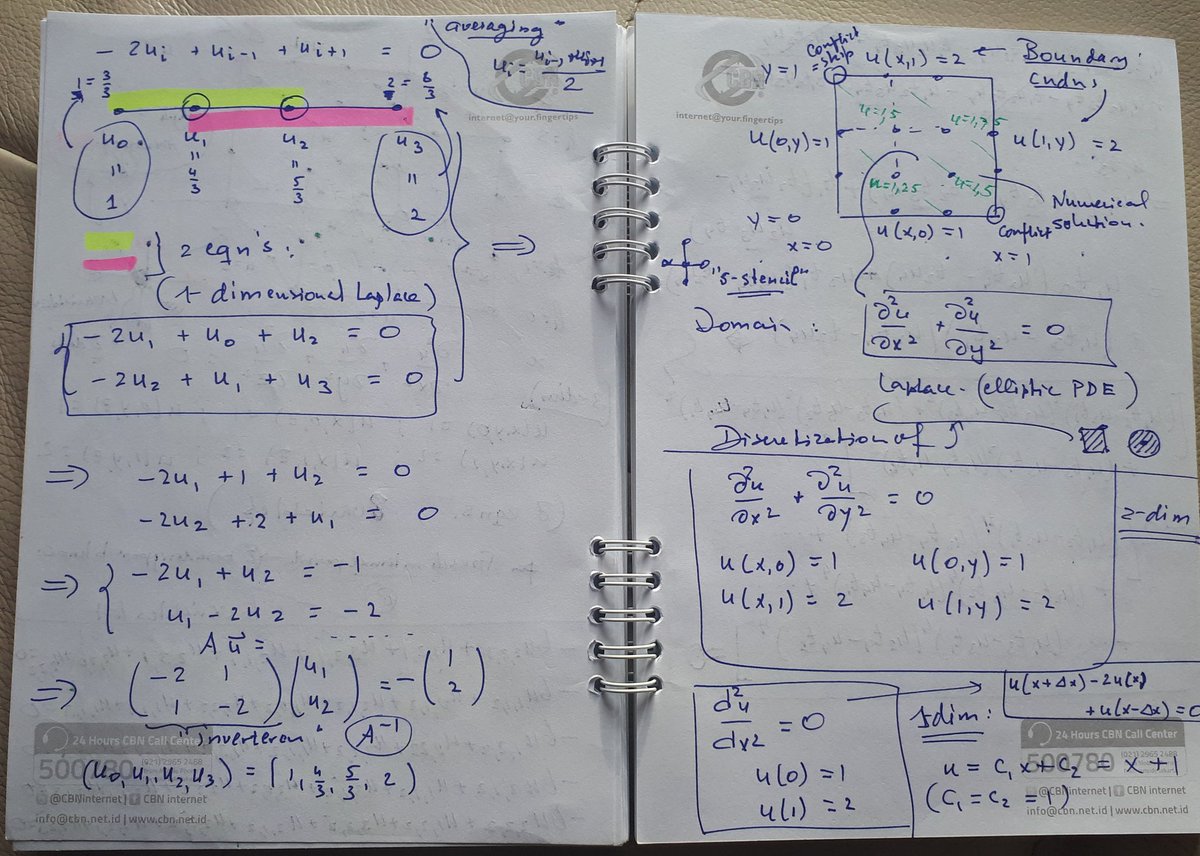 "averaging"
- 2u_i + u_{i-1} + u_{i+1} = 0
u_i = \frac{u_{i-1} + u_{i+1}}{2}
1 = \frac{3}{3}
2 = \frac{6}{3}
u_0 u_1 u_2 u_3
" " " "
1 \frac{4}{3} \frac{5}{3} 2
} 2 eqn's:
(1-dimensional Laplace)
- 2u_1 + u_0 + u_2 = 0
- 2u_2 + u_1 + u_3 = 0
⇒
⇒ -2u_1 + 1 + u_2 = 0
-2u_2 + 2 + u_1 = 0
⇒ { -2u_1 + u_2 = -1
u_1 - 2u_2 = -2
A \vec{u} = - - - - -
⇒ ( -2 1 ) ( u_1 ) = - ( 1 )
( 1 -2 ) ( u_2 ) ( 2 )
"inverteren" A^{-1}
(u_0, u_1, u_2, u_3) = (1, \frac{4}{3}, \frac{5}{3}, 2)
24 Hours CBN Call Center
500780 (021) 2965 2468
@CBNinternet | CBN internet
info@cbn.net.id | www.cbn.net.id
CBN
internet@your.fingertips
Conflict
y=1 u(x,1) = 2 ← Boundary
cndns
CBN
internet@your.fingertips
u=1,5 u=1,75
u(0,y)=1 u(1,y) = 2
u=1,25 u=1,5
Numerical
solution.
y=0 u(x,0) = 1 Conflict
x=0 x=1
"5-stencil"
Domain: \frac{∂²u}{∂x²} + \frac{∂²u}{∂y²} = 0
Laplace - (elliptic PDE)
Discretization of
\frac{∂²u}{∂x²} + \frac{∂²u}{∂y²} = 0
2-dim
u(x,0) = 1 u(0,y) = 1
u(x,1) = 2 u(1,y) = 2
\frac{d²u}{dx²} = 0
u(0) = 1
u(1) = 2
u(x+Δx) - 2u(x)
+ u(x-Δx) = 0
1dim:
u = C_1 x + C_2 = x + 1
(C_1 = C_2 = 1)
24 Hours CBN Call Center
500780
@CBNinternet | CBN internet
info@cbn.net.id | www.cbn.net.id